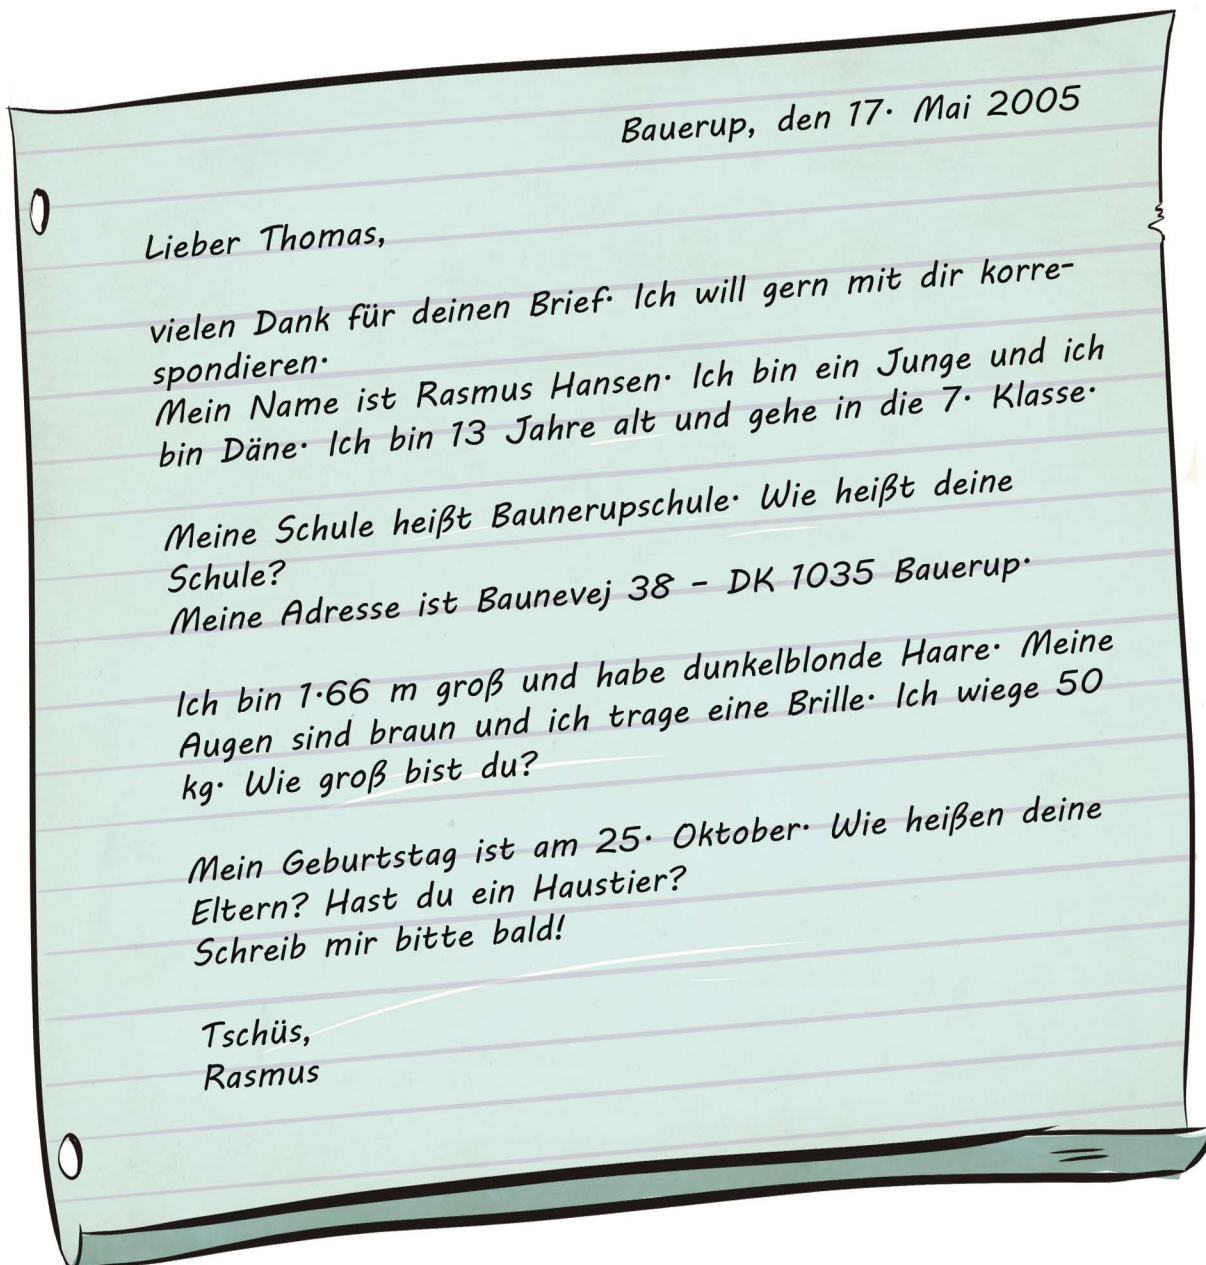 Bauerup, den 17. Mai 2005
Lieber Thomas,
vielen Dank für deinen Brief. Ich will gern mit dir korre-
spondieren.
Mein Name ist Rasmus Hansen. Ich bin ein Junge und ich
bin Däne. Ich bin 13 Jahre alt und gehe in die 7. Klasse.
Meine Schule heißt Baunerupschule. Wie heißt deine
Schule?
Meine Adresse ist Baunevej 38 - DK 1035 Bauerup.
Ich bin 1.66 m groß und habe dunkelblonde Haare. Meine
Augen sind braun und ich trage eine Brille. Ich wiege 50
kg. Wie groß bist du?
Mein Geburtstag ist am 25. Oktober. Wie heißen deine
Eltern? Hast du ein Haustier?
Schreib mir bitte bald!
Tschüs,
Rasmus